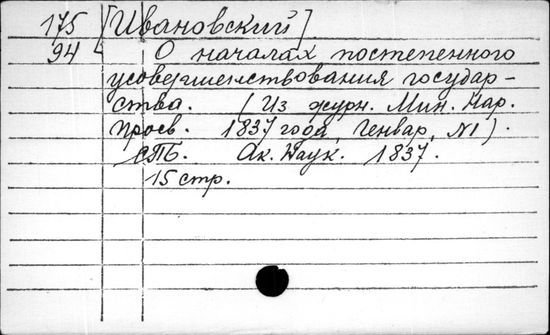 175 [Ивановский]
94 О началах постепенного
усовершенствования государ-
ства. (Из журн. Мин. Нар.
Просв. 1837 года, Генвар, №1).
СПБ. Ак. Наук. 1837.
15 стр.